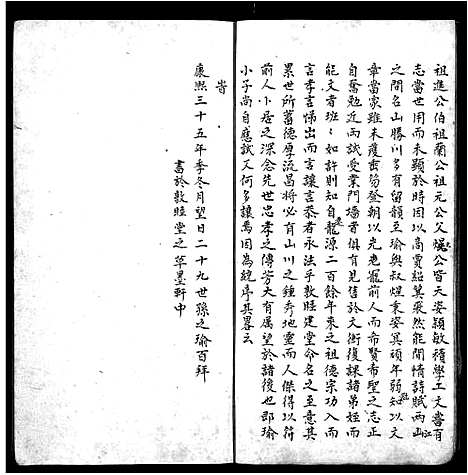 祖進公伯祖蘭公祖元公父爆公皆天姿穎敏積學工文嘗有
志當世用而未顯於時因以高賈紹箕裘然能閒情詩賦兩山
之間名山勝川多有留韻至瑜與叔煋秉姿冥頑年弱知以文
章當家雖未獲蚩笏登朝以光先寵前人而希賢希聖之志正
自奮勉近而試受業門墻者俱有見售於文衡復課諸弟姪而
能文者班〻如許則知自龍源二百餘年來之祖德宗功入而
言孝言悌出而言讓言恭者永法乎敦睦建堂命名之至意其
累世所蓄德厚流昌將必有山川之鍾秀地靈而人傑得以符
前人卜居之深念先世忠孝之傳芳大有属望於諸後也即瑜
小子尚自應試又何多讓焉因為繞序其畧云
旹
康熙三十五年季冬月望日二十九世孫之瑜百拜
書於敦睦堂之草墨軒中